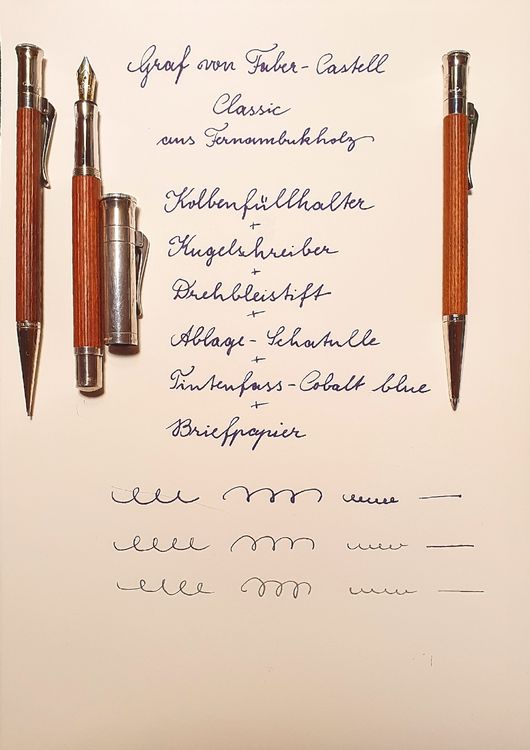 Graf von Faber-Castell
Classic
aus Fernambukholz
Kolbenfüllhalter
+
Kugelschreiber
+
Drehbleistift
+
Ablage-Schatulle
+
Tintenfass-Cobalt blue
+
Briefpapier